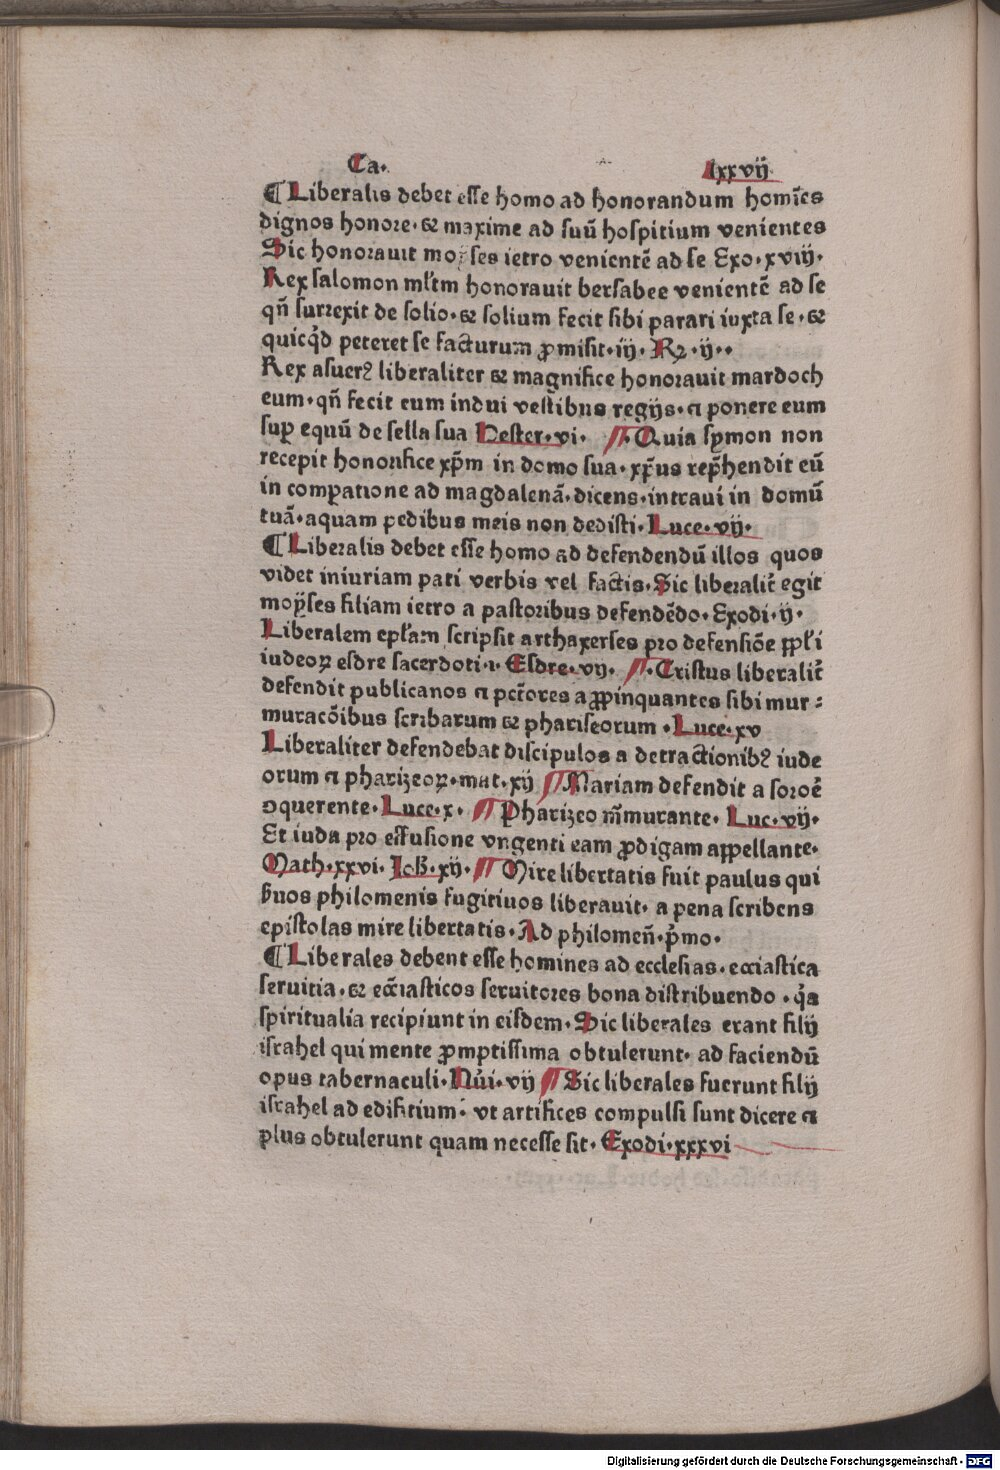 Ca. lxxvij
¶ Liberalis debet esse homo ad honorandum homĩes
dignos honore. ⁊ maxime ad suũ hospitium venientes
Sic honorauit moyses ietro venientẽ ad se Exo. xviij.
Rex salomon mĺtm honorauit bersabee venientẽ ad se
qñ surrexit de solio. ⁊ solium fecit sibi parari iuxta se. ⁊
quicq̃d peteret se facturum ꝓmisit. iij. Rꝫ. ij..
Rex asuerꝰ liberaliter ⁊ magnifice honorauit mardoch
eum. qñ fecit eum indui vestibus regijs. ⁊ ponere eum
suꝑ equũ de sella sua Hester. vi. ¶. Quia symon non
recepit honorifice xp̃m in domo sua. xp̃us rep̃hendit eũ
in comꝑatione ad magdalenã. dicens. intraui in domũ
tuã. aquam pedibus meis non dedisti. Luce. vij.
¶ Liberalis debet esse homo ad defendendũ illos quos
videt iniuriam pati verbis vel factis. Sic liberalit̃ egit
moyses filiam ietro a pastoribus defendẽdo. Exodi. ij.
Liberalem epĺam scripsit arthaxerses pro defensiõe ppĺi
iudeoꝝ esdre sacerdoti. ı. Esdre. vij. ¶. Cristus liberalit̃
defendit publicanos ⁊ pct̃ores a ꝓpinquantes sibi mur⸗
muracõibus scribarum ⁊ phariseorum. Luce. xv
Liberaliter defendebat discipulos a detractionibꝰ iude
orum ⁊ pharizeoꝝ. mat. xij ¶ Mariam defendit a soroẽ
ↄquerente. Luce. x. ¶ Pharizeo m̃murante. Luc. vij.
Et iuda pro effusione vngenti eam ꝓdigam appellante.
Math. xxvi. Ioh̃. xij. ¶ Mire libertatis fuit paulus qui
s̃uos philomenis fugitiuos liberauit. a pena scribens
epistolas mire libertatis. Ad philomeñ. p̃mo.
¶ Liberales debent esse homines ad ecclesias. ecc̃iastica
seruitia. ⁊ ecc̃iasticos seruitores bona distribuendo. q̃a
spiritualia recipiunt in eisdem. Sic liberales erant filij
israhel qui mente ꝓmptissima obtulerunt. ad faciendũ
opus tabernaculi. Nũi. vij ¶ Sic liberales fuerunt filij
israhel ad edifitium. vt artifices compulsi sunt dicere ⁊
plus obtulerunt quam necesse sit. Exodi. xxxvi
Digitalisierung gefördert durch die Deutsche Forschungsgemeinschaft - DFG